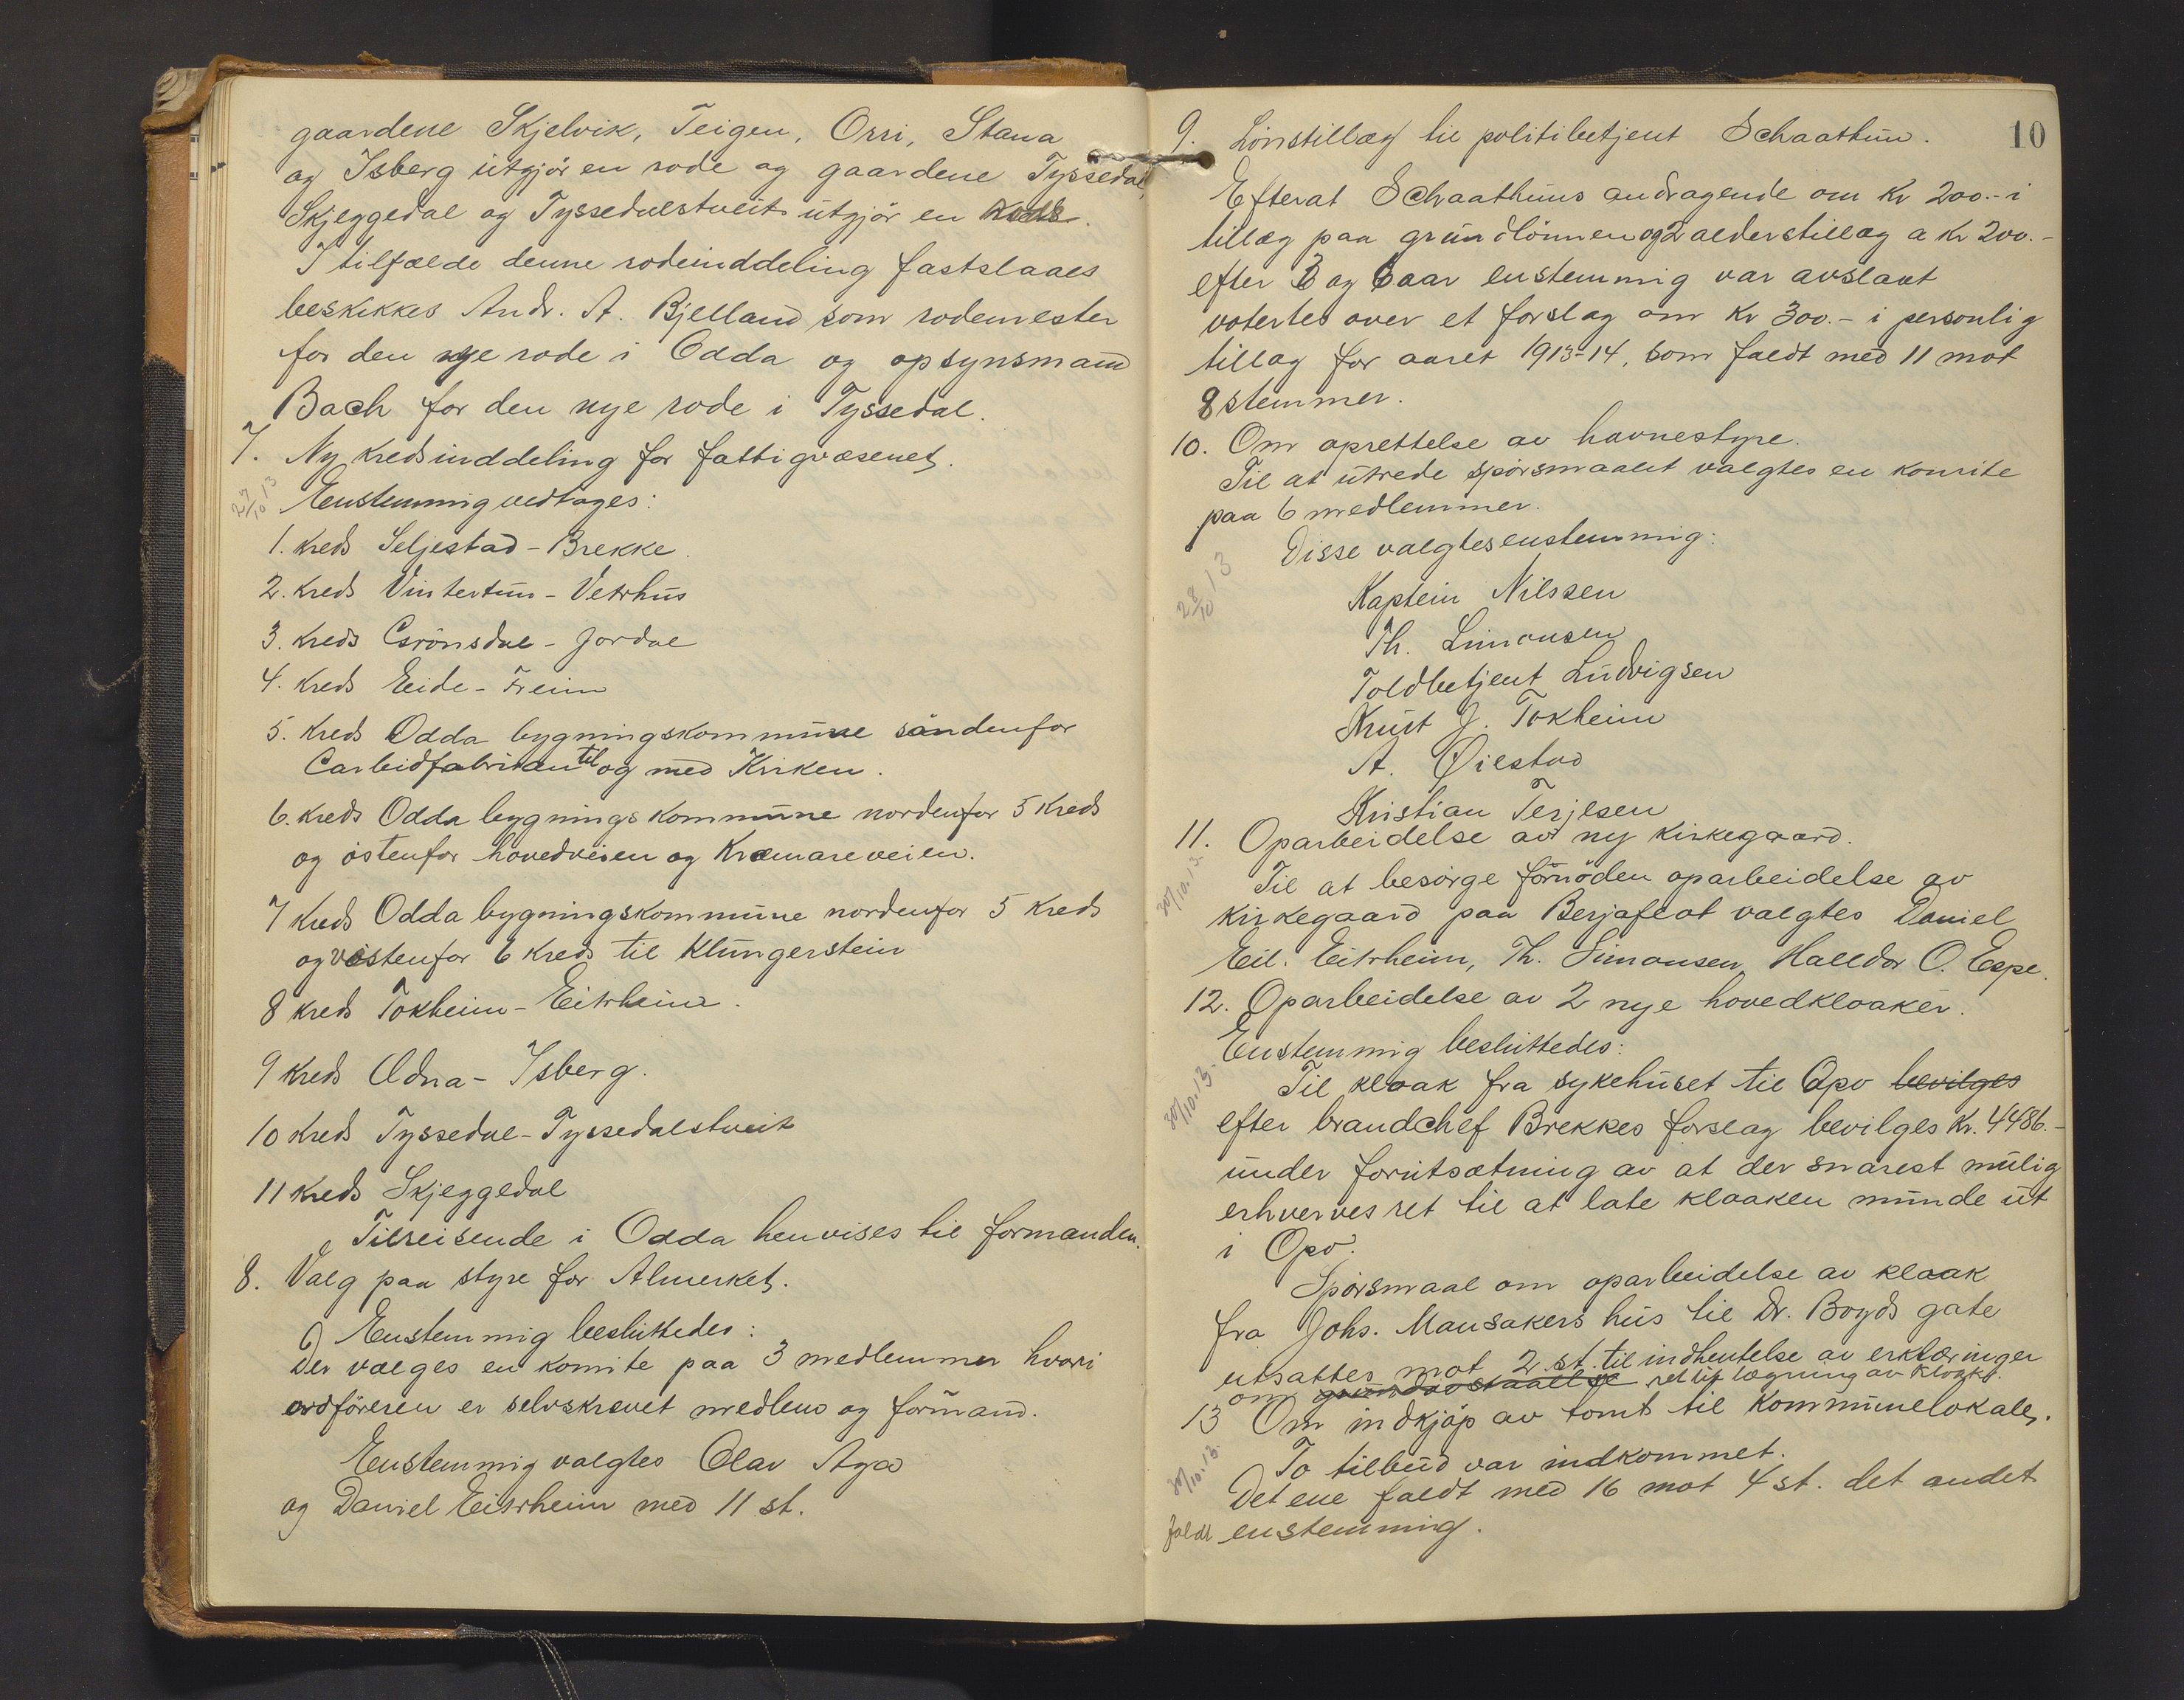 gaardene Skjelvik, Teigen, Orri, Stana
og Isberg utgjör en rode og gaardene Tyssedal,
Skjeggedal og Tyssedalstveit utgjör en
I tilfælde denne rodeinddeling fastslaaes
beskikkes Andr. A. Bjelland som rodemester
for den nye rode i Odda og opsynsmand
Bach for den nye rode i Tyssedal.
7. Ny kredsinddeling for fattigvæsenet.
27/10 13 Eenstemmig vedtages:
1. kreds Seljestad - Brekke.
2. kreds Vintertun - Vetrhus
3. kreds Grönsdal - Jordal
4. kreds Eide - Freim
5. kreds Odda bygningskommune söndenfor
Carbidfabriken til og med Kirken.
6. kreds Odda bygningskommune nordenfor 5 kreds
og östenfor hovedveien og Kræmareveien.
7 kreds Odda bygningskommune nordenfor 5 kreds
og vestenfor 6 kreds til Klungerstein
8 kreds Tokheim - Eitrheim.
9 kreds Odna - Isberg.
10 kreds Tyssedal - Tyssedalstveit
11 kreds Skjeggedal
Tilreisende i Odda henvises til formanden.
8. Valg paa styre for Almerket.
Eenstemmig besluttedes:
Der vælges en komite paa 3 medlemmer hvori
ordföreren er selvskrevet medlem og formand.
Eenstemmig valgtes Olav Aga
og Daniel Eitrheim med 11 st.
10
9. Lönstillæg til politibetjent Schaathun.
Efterat Schaathuns andragende om Kr 200.- i
tillæg paa grundlönnen og 2 alderstillæg a Kr 200.-
efter 3 og 6 aar enstemmig var avslaat
votertes over et forslag om Kr 300.- i personlig
tillæg for aaret 1913-14, som faldt med 11 mot
8 stemmer.
10. Om oprettelse av havnestyre.
Til at utrede spörsmaalet valgtes en komite
paa 6 medlemmer.
Disse valgtes enstemmig:
28/10 13
Kaptein Nilssen
Th. Simonsen
Toldbetjent Ludvigsen
Knut J. Tokheim
A. Øiestad
Kristian Terjesen
11. Oparbeidelse av ny kirkegaard.
30/10.13. Til at besörge fornöden oparbeidelse av
kirkegaard paa Berjaflot valgtes Daniel
Eil. Eitrheim, Th. Simonsen, Halldor O. Espe.
12. Oparbeidelse av 2 nye hovedkloaker.
Enstemmig besluttedes:
30/10.13. Til kloak fra sykehuset til Opo bevilges
efter brandchef Brekkes forslag bevilges Kr. 4486.-
under forutsætning av at der snarest mulig
erhverves ret til at late kloaken munde ut
i Opo.
Spörsmaal om oparbeidelse av kloak
fra Johs. Mausakers hus til Dr. Boyds gate
utsattes mot 2 st. til indhentelse av erklæringer
om grundavstaaelse ret til lægning av kloak.
13 Om indkjöp av tomt til kommunelokale.
30/10.13. To tilbud var indkommet.
Det ene faldt med 16 mot 4 st. det andet
faldt enstemmig.